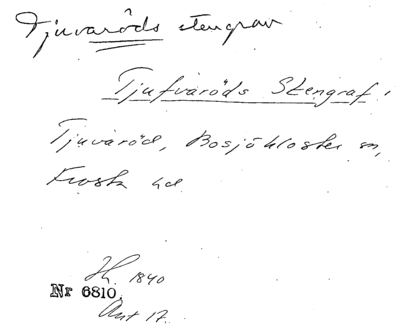 Tjuvaröds stengrav
Tjufvaröds Stengraf.
Tjuvaröd, Bosjökloster sn,
Frosta hd
Jh. 1840
Nr 6810.
Ant 17.